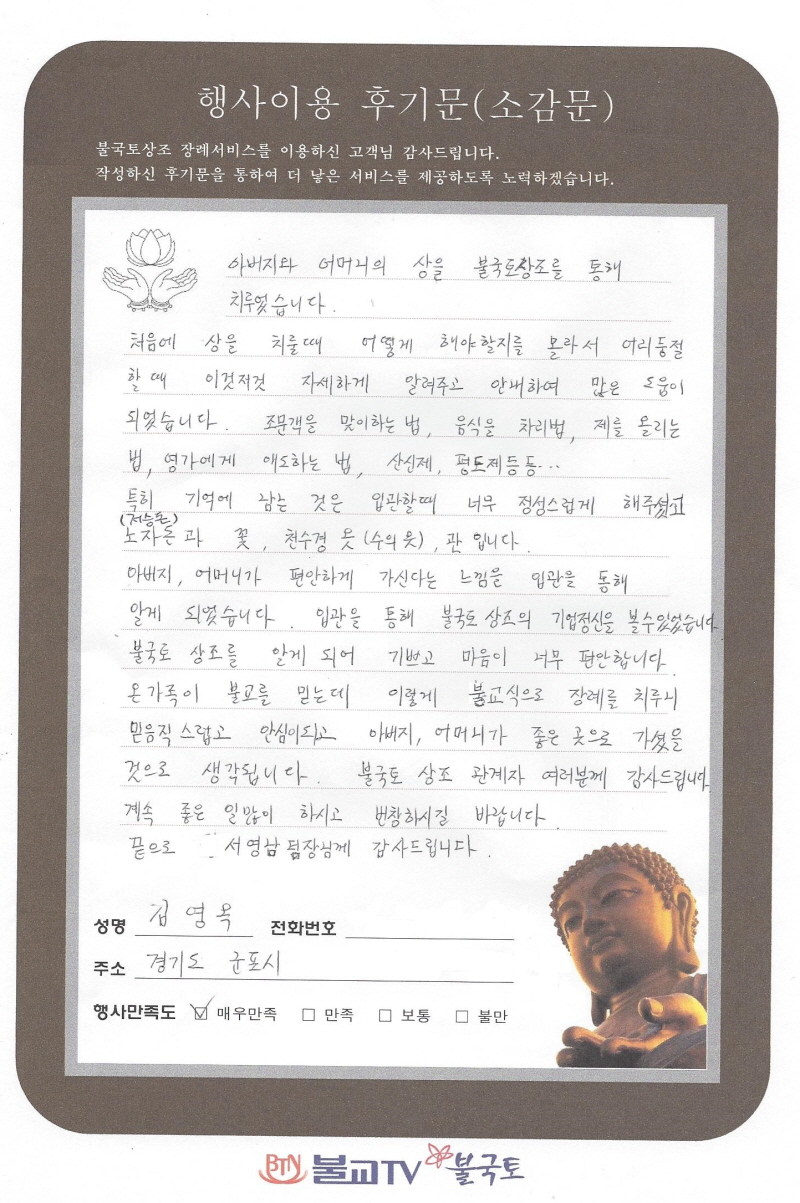 행사이용 후기문(소감문)
불국토상조 장례서비스를 이용하신 고객님 감사드립니다.
작성하신 후기문을 통하여 더 낳은 서비스를 제공하도록 노력하겠습니다.
아버지와 어머니의 상을 불국토상조를 통해
치루었습니다.
처음에 상을 치룰때 어떻게 해야할지를 몰라서 어리둥절
할때 이것저것 자세하게 알려주고 안내하여 많은 도움이
되었습니다. 조문객을 맞이하는법, 음식을 차리법, 제를 올리는
법, 영가에게 애도하는 법, 산신제, 평토제등등...
특히 기억에 남는 것은 입관할때 너무 정성스럽게 해주셨고
(저승돈)
노자돈과 꽃, 천수경 옷(수의옷), 관 입니다.
아버지, 어머니가 편안하게 가신다는 느낌을 입관을 통해
알게 되었습니다. 입관을 통해 불국토 상조의 기업정신을 볼수있었습니다
불국토 상조를 알게 되어 기쁘고 마음이 너무 편안합니다.
온가족이 불교를 믿는데 이렇게 불교식으로 장례를 치루니
믿음직스럽고 안심이되고 아버지, 어머니가 좋은 곳으로 가셨을
것으로 생각됩니다. 불국토 상조 관계자 여러분께 감사드립니다
계속 좋은 일많이 하시고 번창하시길 바랍니다.
끝으로 서영남 팀장님께 감사드립니다.
성명 김영옥 전화번호
주소 경기도 군포시
행사만족도 매우만족 만족 보통 불만
BTN 불교TV 불국토